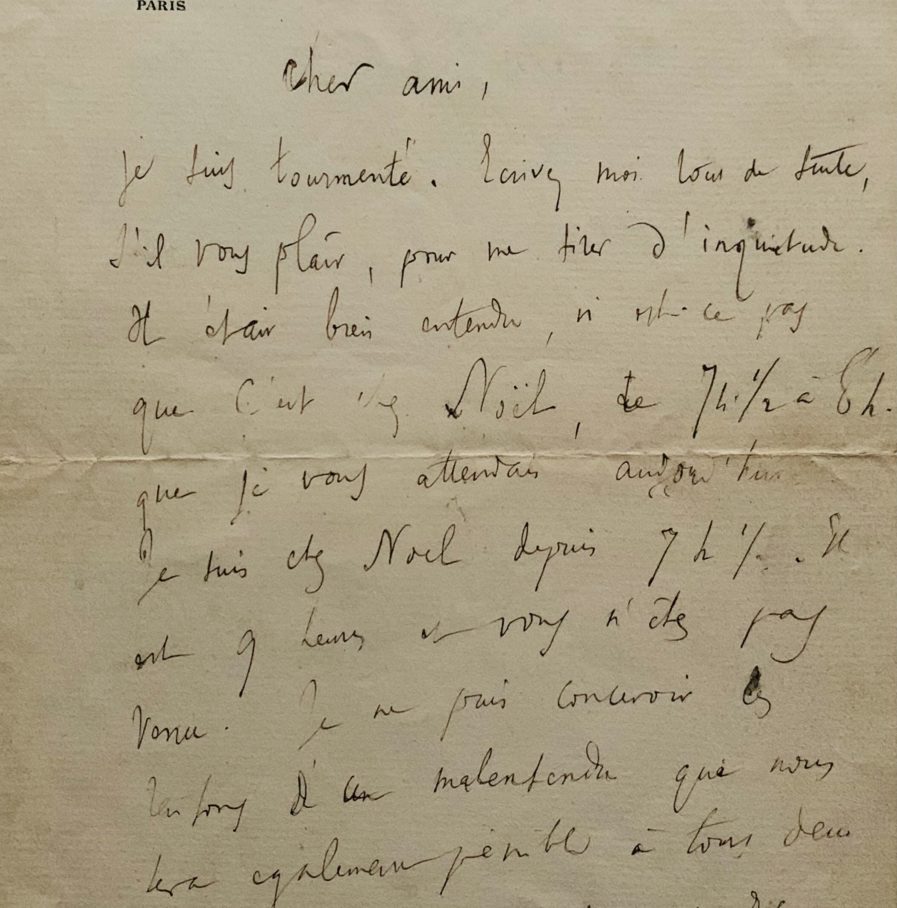 PARIS
Cher ami,
Je suis tourmenté. Ecrivez moi tout de suite,
s'il vous plaît, pour me tirer d'inquiétude.
Il était bien entendu, n'est-ce pas
que c'est chez Noël, de 7h. 1/2 à 8 h.
que je vous attendais aujourd'hui
Je suis chez Noel depuis 7 h 1/2. Il
est 9 heures et vous n'êtes pas
venu. Je ne puis concevoir les
raisons d'un malentendu qui nous
sera également pénible à tous deux